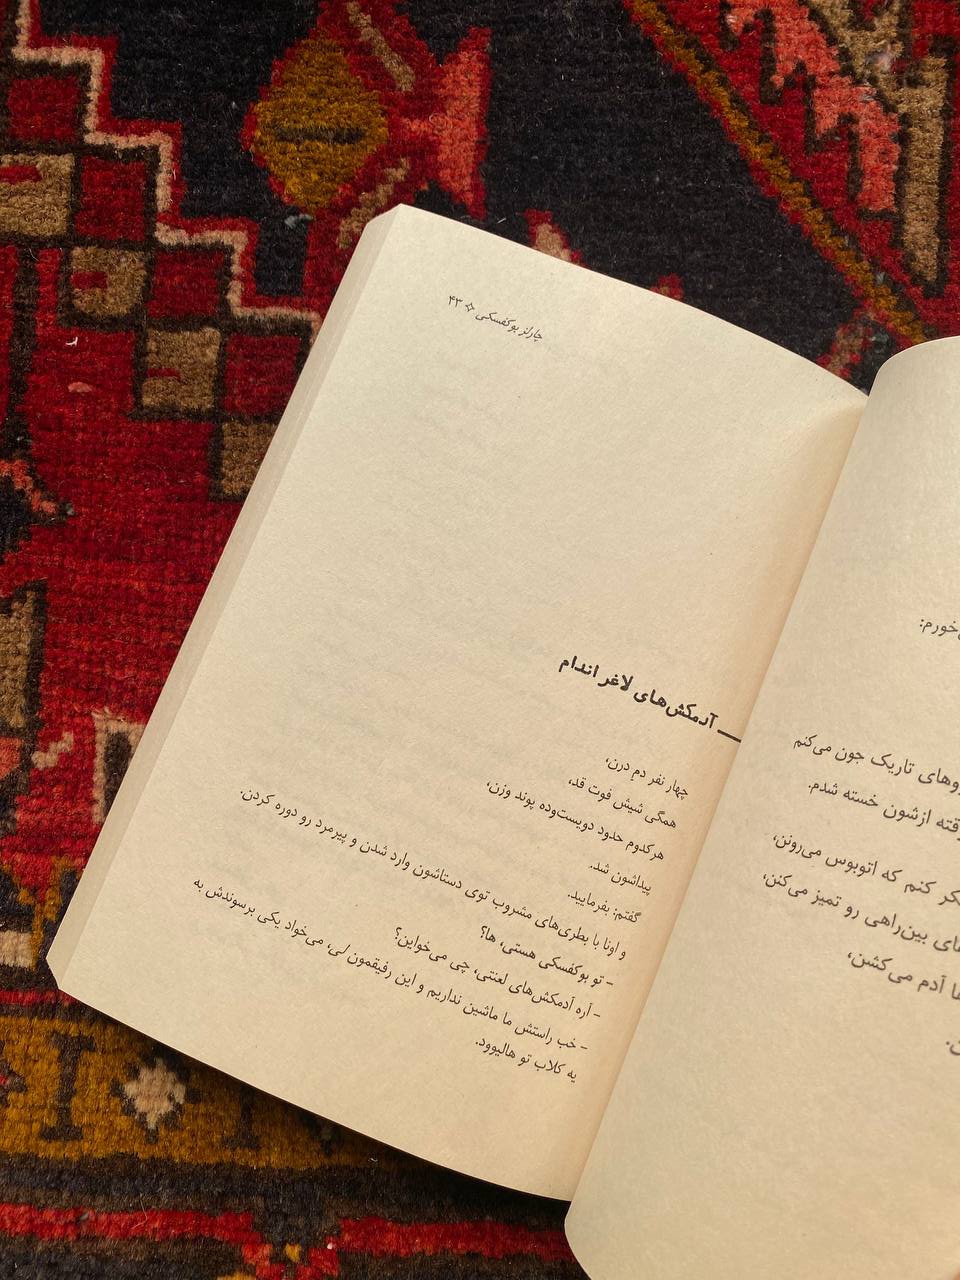 چارلز بوکفسکی ✧ ۴۳
آدمکش‌های لاغر اندام
چهار نفر دمِ درن،
همگی شیش فوت قد،
هرکدوم حدود دویست‌وده پوند وزن،
پیداشون شد.
گفتم: بفرمایید.
و اونا با بطری‌های مشروب توی دستاشون وارد شدن و پیرمرد رو دوره کردن.
- تو بوکفسکی هستی، ها؟
- آره آدمکش‌های لعنتی، چی می‌خواین؟
- خب راستش ما ماشین نداریم و این رفیقمون لی، می‌خواد یکی برسوندش به
یه کلاب تو هالیوود.
‌خورم:
تاریک جون می‌کنم
ازشون خسته شدم.
کنم که اتوبوس می‌رونن،
بین‌راهی رو تمیز می‌کنن،
آدم می‌کشن،